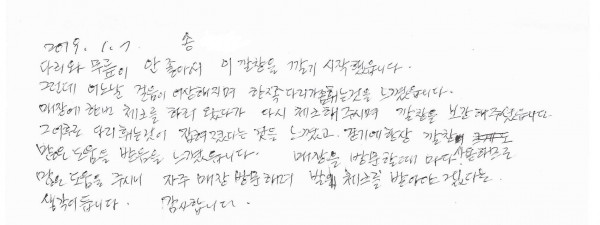 2019. 1. 7 송
다리와 무릎이 안 좋아서 이 깔창을 깔기 시작했읍니다.
그런데 어느날 걸음이 이상해지며 한쪽다리가 휘는것을 느꼈읍니다.
매장에 한번 체크를 하러 왔다가 다시 체크해주시며 깔창을 보강해주셨읍니다
그 이후로 다리휘는것이 잡혀졌다는 것을 느꼈고, 깔창도
많은 도움을 받음을 느꼈읍니다. 매장을 방문할때 마다
많은 도움을 주시니 자주 매장 방문하며 발 체크를 받아야 겠다는
생각이듭니다. 감사합니다.